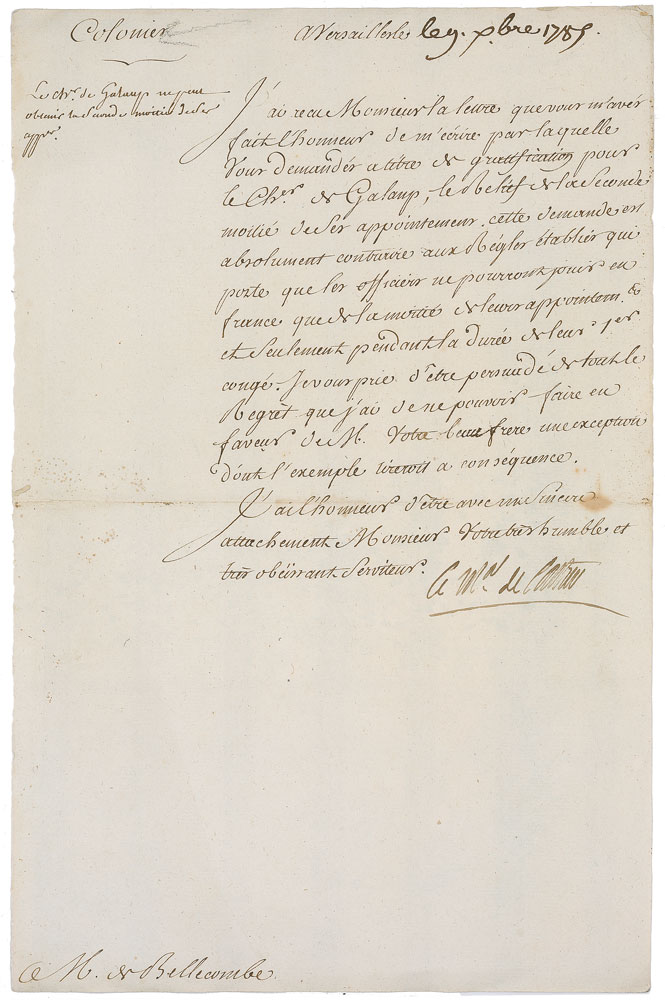 Colonies
A Versailles le 9. xbre 1785
Le chr. de Galaup ne peut
obtenir la Seconde moitié de Ses
appts.
J'ai reçu Monsieur la lettre que vous m'avés
fait l'honneur de m'écrire par laquelle
Vous demandés a titre de gratification pour
le Cher. de Galaup, le Relief de la Seconde
moitié de Ses appointemens. cette demande est
absolument contraire aux Régles établies qui
porte que les officiers ne pourront jouir en
france que de la moitié de leurs appointem.ts
et Seulement pendant la durée de leurs 1ers
congé. Je vous prie d'être persuadé de tout le
Regrêt que j'ai de ne pouvoir faire en
faveur de M. Votre beau frere une exception
dont l'exemple tireroit a conséquence.
J'ai l'honneur d'être avec un Sincere
attachement Monsieur Votre très humble et
très obéissant Serviteur.
Le Mal. de Castries
M. de Bellecombe